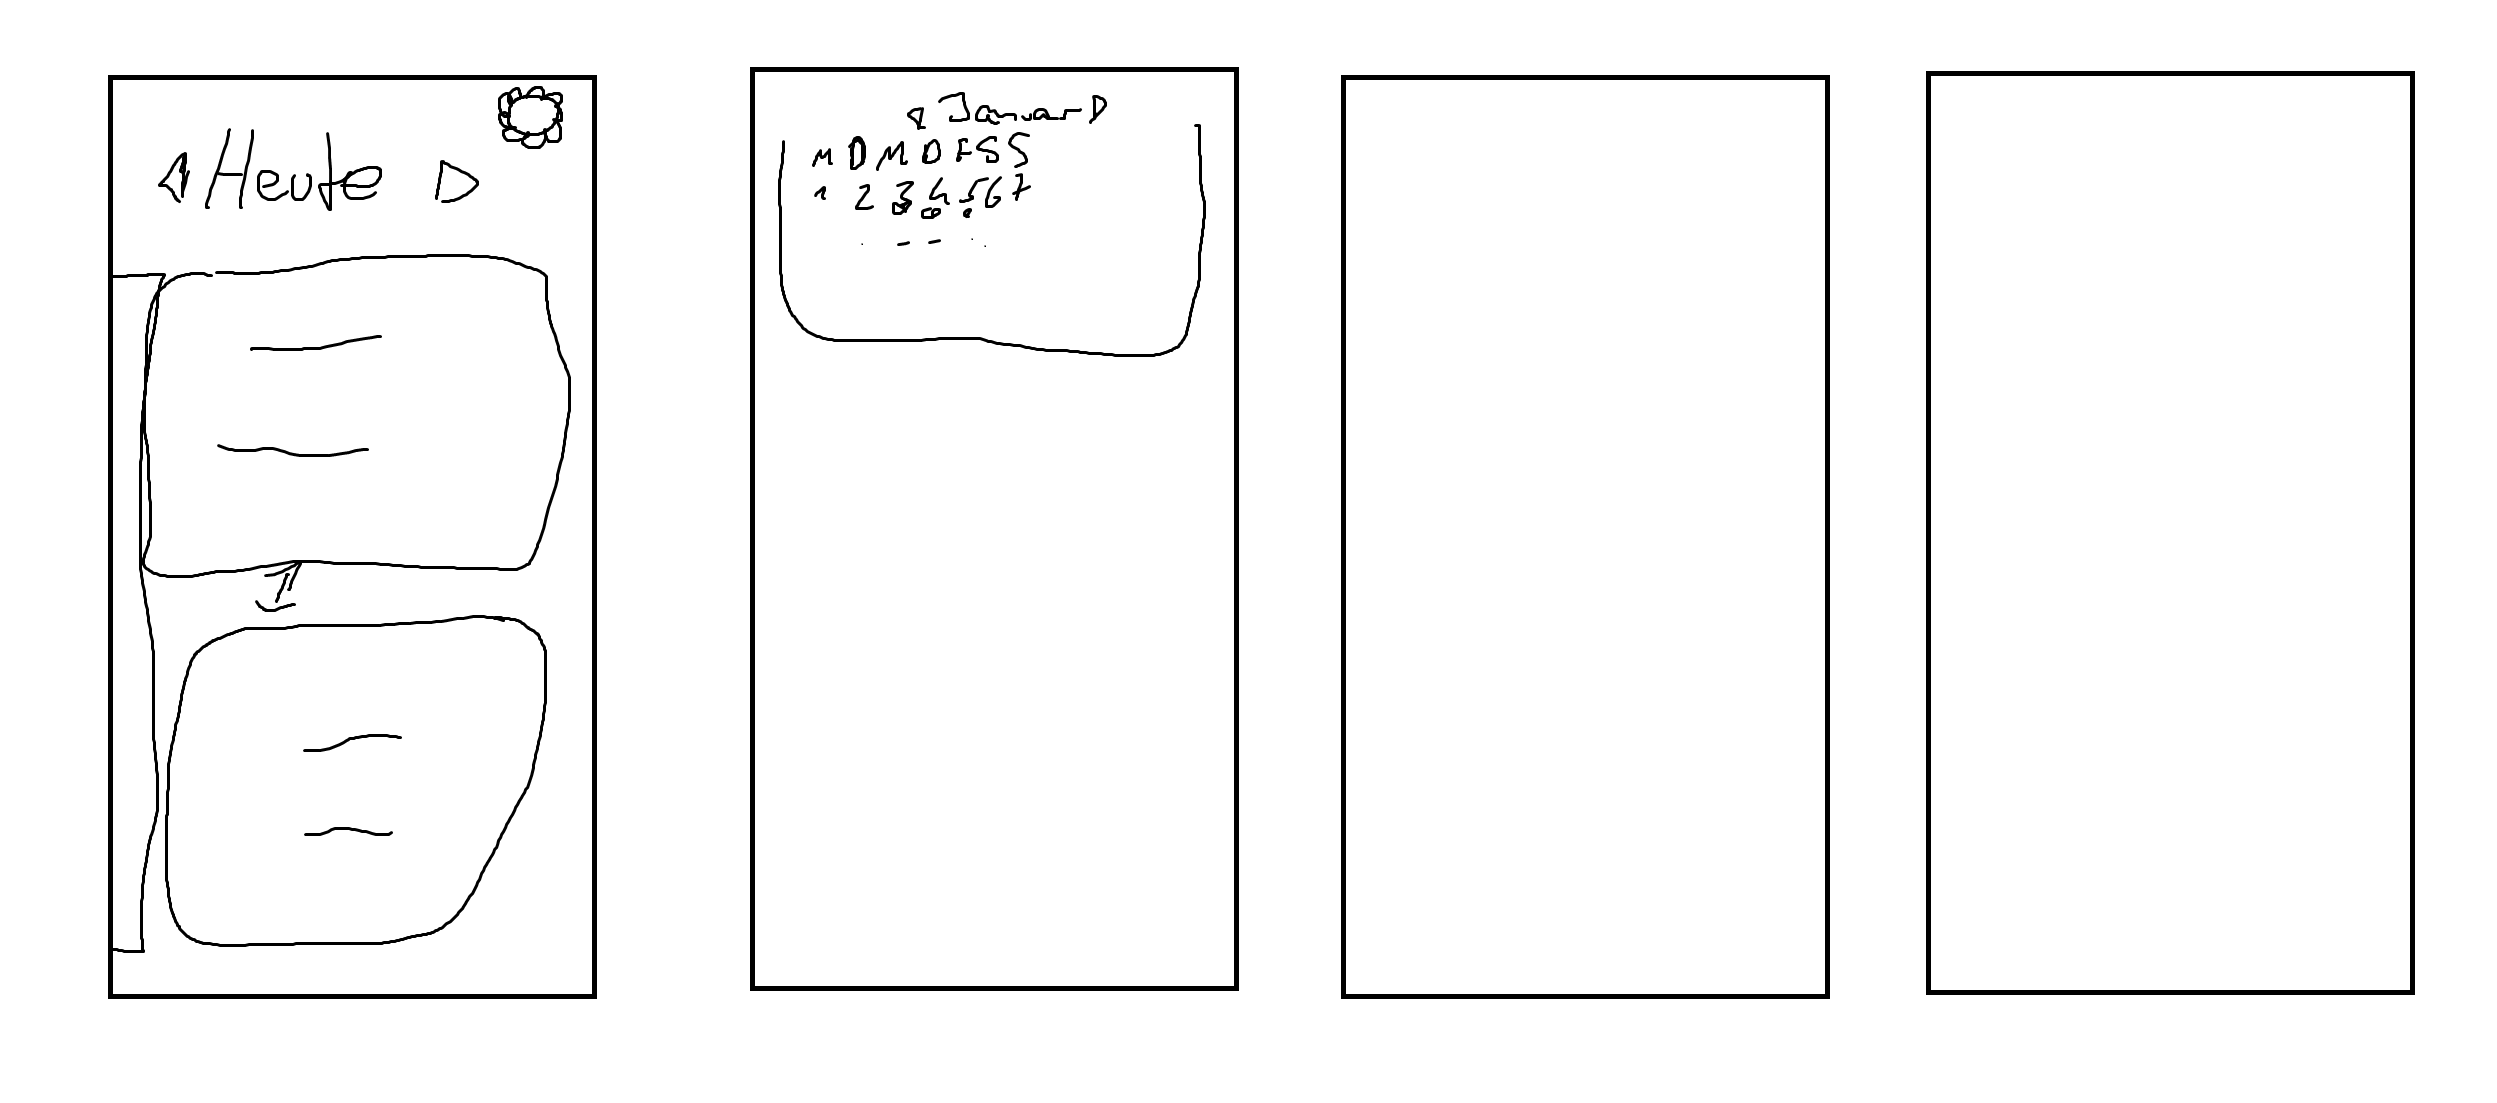 Heute
Januar
M D M D F S S
1 2 3 4 5 6 7